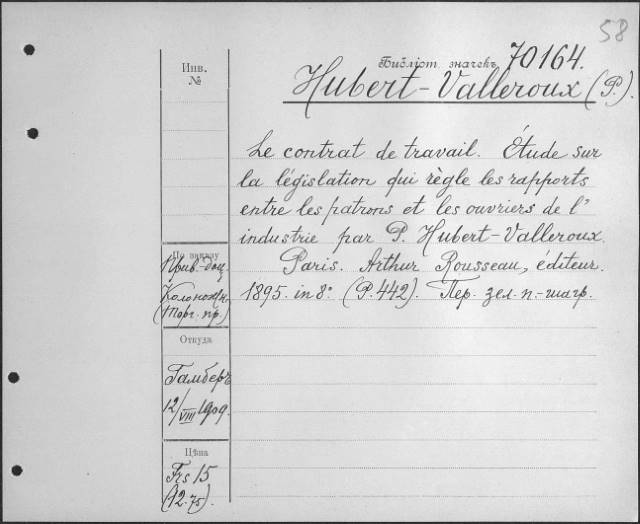 58
Библіот. значекъ 70164.
Hubert-Valleroux (P.).
Инв.
№
Le contrat de travail. Étude sur
la législation qui règle les rapports
entre les patrons et les ouvriers de l'
industrie par P. Hubert-Valleroux.
Paris. Arthur Rousseau, éditeur.
1895. in 8° (P. 442). Пер. зел. п.-шагр.
По заказу
Прив.-доц.
(Торг. пр.)
Откуда
Гамберъ
12/VIII 1909.
Цѣна
Frs 15
(12.75).